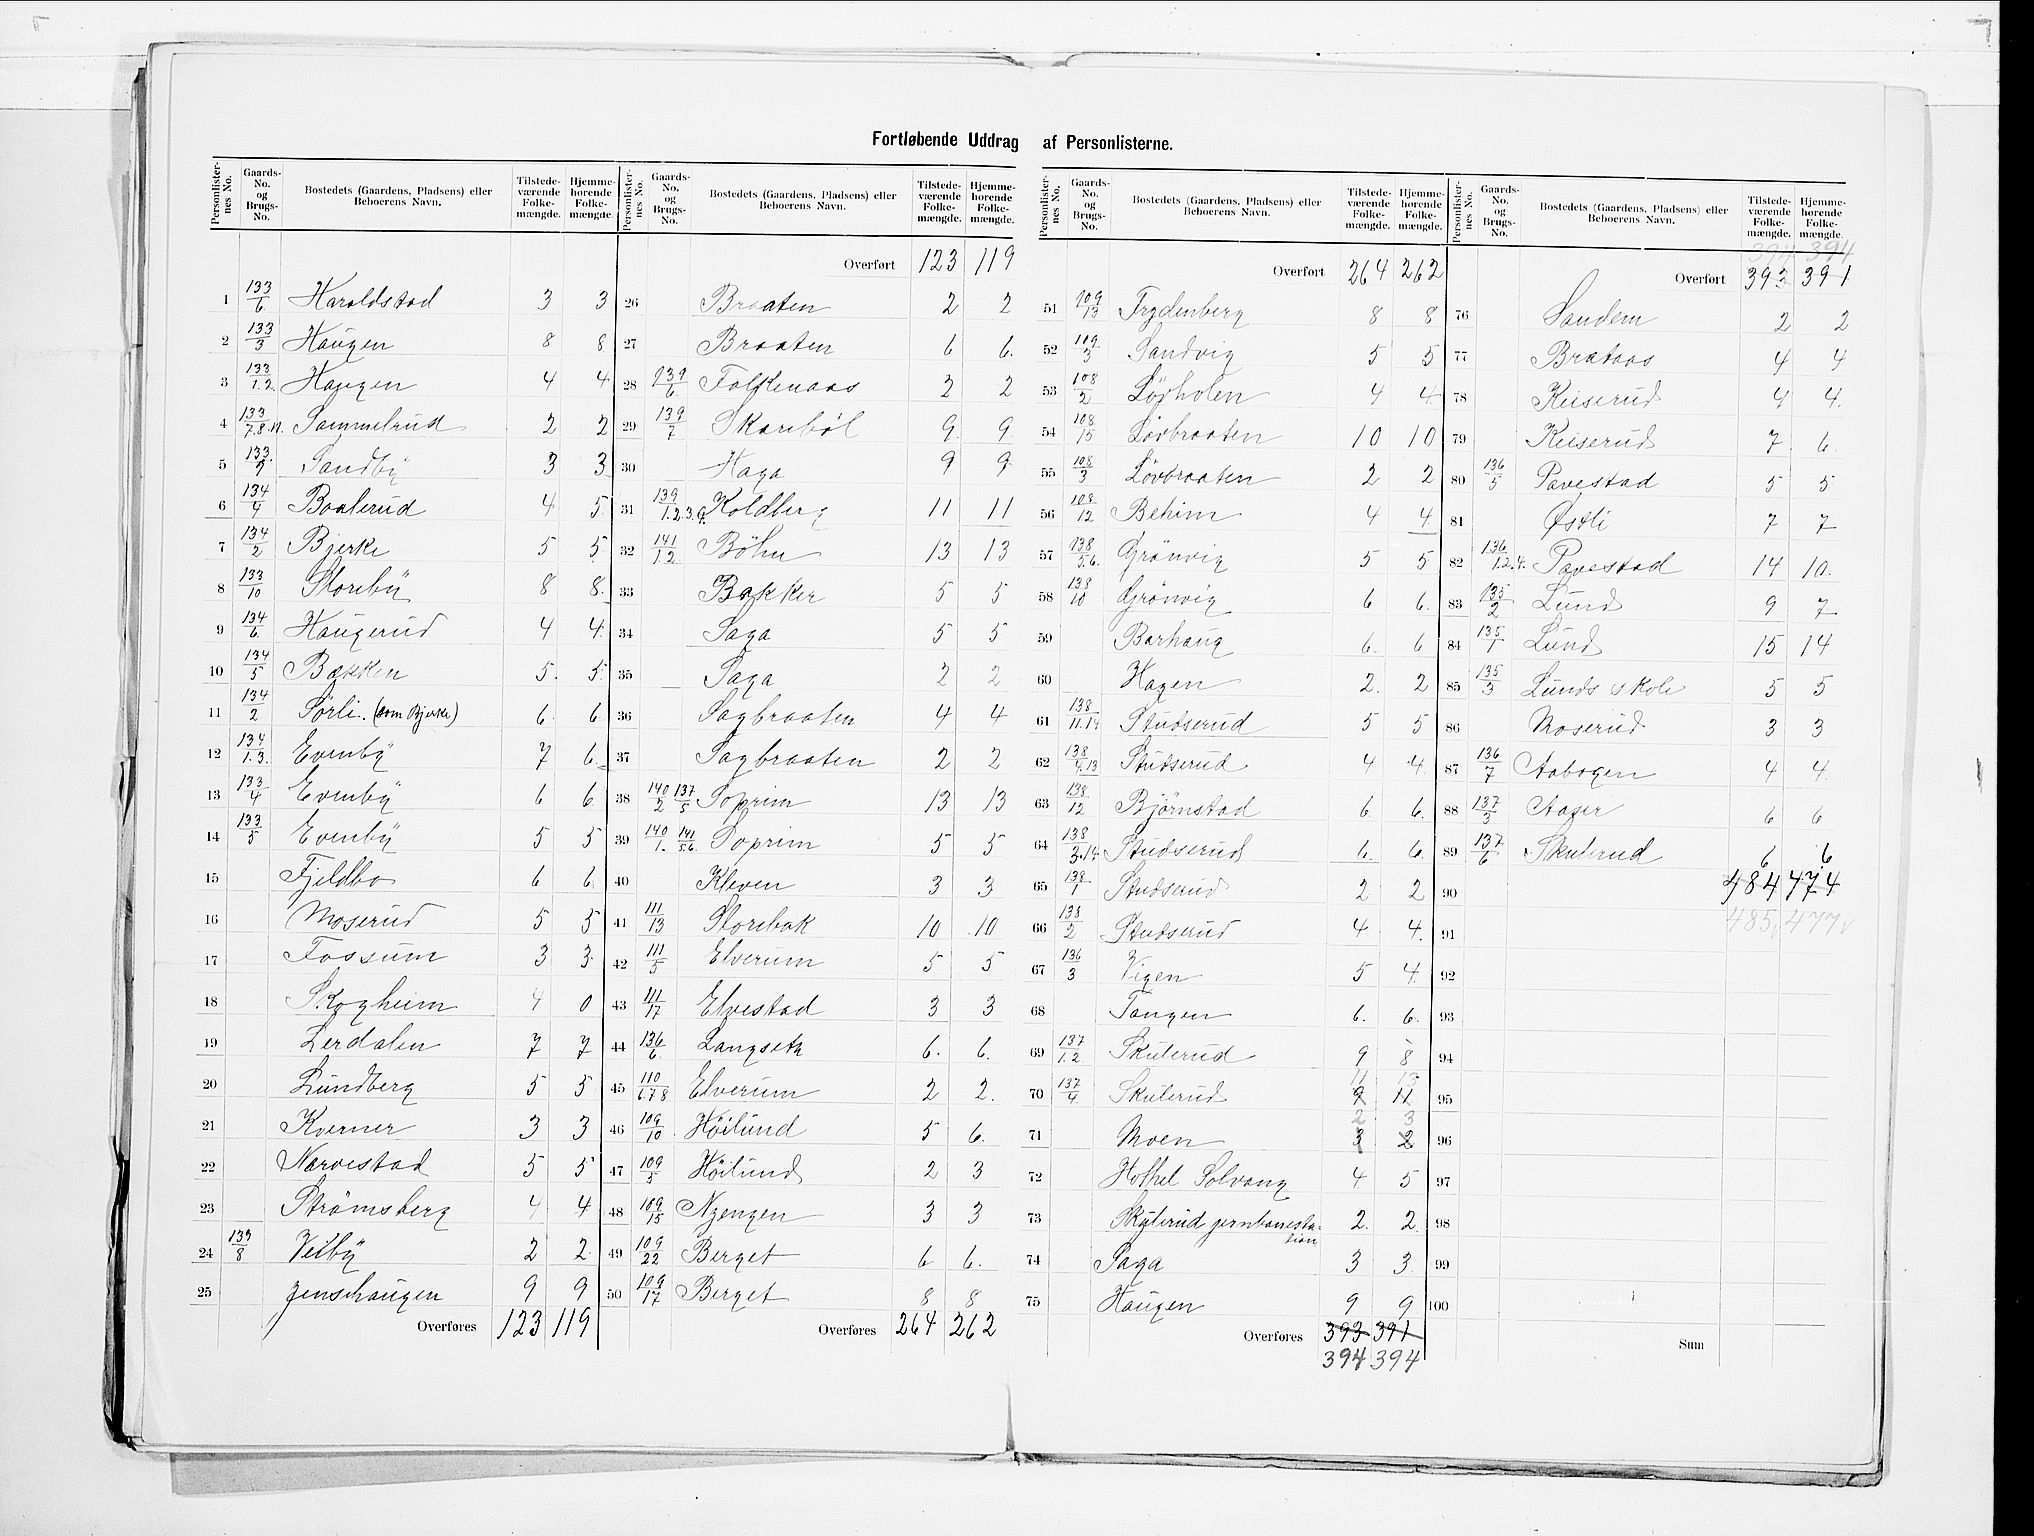 Fortløbende Uddrag af Personlisterne.
Personlister-nes No. | Gaards-No. og Brugs-No. | Bostedets (Gaardens, Pladsens) eller Beboerens Navn. | Tilstede-værende Folke-mængde. | Hjemme-hørende Folke-mængde.
1 133/6 Haroldstad 3 3
2 133/3 Haugen 8 8
3 133/1.2 Haugen 4 4
4 133/7.8.11. Sammelrud 2 2
5 133/9 Sandby 3 3
6 134/4 Baalerud 4 5
7 134/2 Bjerke 5 5
8 133/10 Storeby 8 8
9 134/6 Haugerud 4 4
10 134/5 Bakken 5 5
11 134/2 Sørli. (som Bjerke) 6 6
12 134/1.3. Evenby 7 6
13 133/4 Evenby 6 6
14 133/5 Evenby 5 5
15 Fjeldbo 6 6
16 Moserud 5 5
17 Fossum 3 3
18 Skogheim 4 0
19 Lerdalen 7 7
20 Lundberg 5 5
21 Kverner 3 3
22 Narvestad 5 5
23 Strømsberg 4 4
24 133/8 Veiby 2 2
25 Jenshaugen 9 9
Overføres 123 119
Personlister-nes No. | Gaards-No. og Brugs-No. | Bostedets (Gaardens, Pladsens) eller Beboerens Navn. | Tilstede-værende Folke-mængde. | Hjemme-hørende Folke-mængde.
Overført 123 119
26 Braaten 2 2
27 Braaten 6 6
28 139/6 Falkenaas 2 2
29 139/7 Skarebøl 9 9
30 Haga 9 9
31 139/1.2.3.9. Koldberg 11 11
32 141/1.2 Bøhn 13 13
33 Bakker 5 5
34 Saga 5 5
35 Saga 2 2
36 Sagbraaten 4 4
37 Sagbraaten 2 2
38 140/2 137/5 Soprim 13 13
39 140/1. 141/5.6. Soprim 5 5
40 Kleven 3 3
41 111/13 Storebak 10 10
42 111/5 Elverum 5 5
43 111/17 Elvestad 3 3
44 136/6. Langseth 6 6
45 110/6.7.8 Elverum 2 2
46 109/10 Høilund 5 6
47 109/5 Høilund 2 3
48 109/15 Nyengen 3 3
49 109/22 Berget 6 6
50 109/17 Berget 8 8
Overføres 264 262
Personlister-nes No. | Gaards-No. og Brugs-No. | Bostedets (Gaardens, Pladsens) eller Beboerens Navn. | Tilstede-værende Folke-mængde. | Hjemme-hørende Folke-mængde.
Overført 264 262
51 109/13 Frydenberg 8 8
52 109/3 Sandvig 5 5
53 108/2 Løvholen 4 4
54 108/15 Løvbraaten 10 10
55 108/3 Løvbraaten 2 2
56 108/12 Behim 4 4
57 138/5.6. Grønvig 5 5
58 138/10 Grønvig 6 6
59 Barhaug 6 6
60 Hagen 2 2
61 138/11.14 Studserud 5 5
62 138/4.13 Studserud 4 4
63 138/12 Bjørnstad 6 6
64 138/3.14 Studserud 6 6
65 138/1 Studserud 2 2
66 138/2 Studserud 4 4
67 136/3 Vigen 5 4
68 Tangen 6 6
69 137/1.2 Skulerud 9 8
11 13
70 137/4 Skulerud 9 11
2 3
71 Moen 3 2
72 Hothel Solvang 4 5
73 Skulerud jernbanesta-tion 2 2
74 Saga 3 3
75 Haugen 9 9
Overføres 393 391
394 394
Personlister-nes No. | Gaards-No. og Brugs-No. | Bostedets (Gaardens, Pladsens) eller Beboerens Navn. | Tilstede-værende Folke-mængde. | Hjemme-hørende Folke-mængde.
394 394
Overført 393 391
76 Sandem 2 2
77 Brataas 4 4
78 Keiserud 4 4
79 Keiserud 7 6
80 136/5 Pavestad 5 5
81 Østli 7 7
82 136/1.2.4. Pavestad 14 10
83 135/2 Lund 9 7
84 135/1 Lund 15 14
85 135/3 Lunds skole 5 5
86 Moserud 3 3
87 136/7 Aabogen 4 4
88 137/3 Aaser 6 6
89 137/6 Skulerud 6 6
90 484 474
91 485 477
92
93
94
95
96
97
98
99
100
Sum